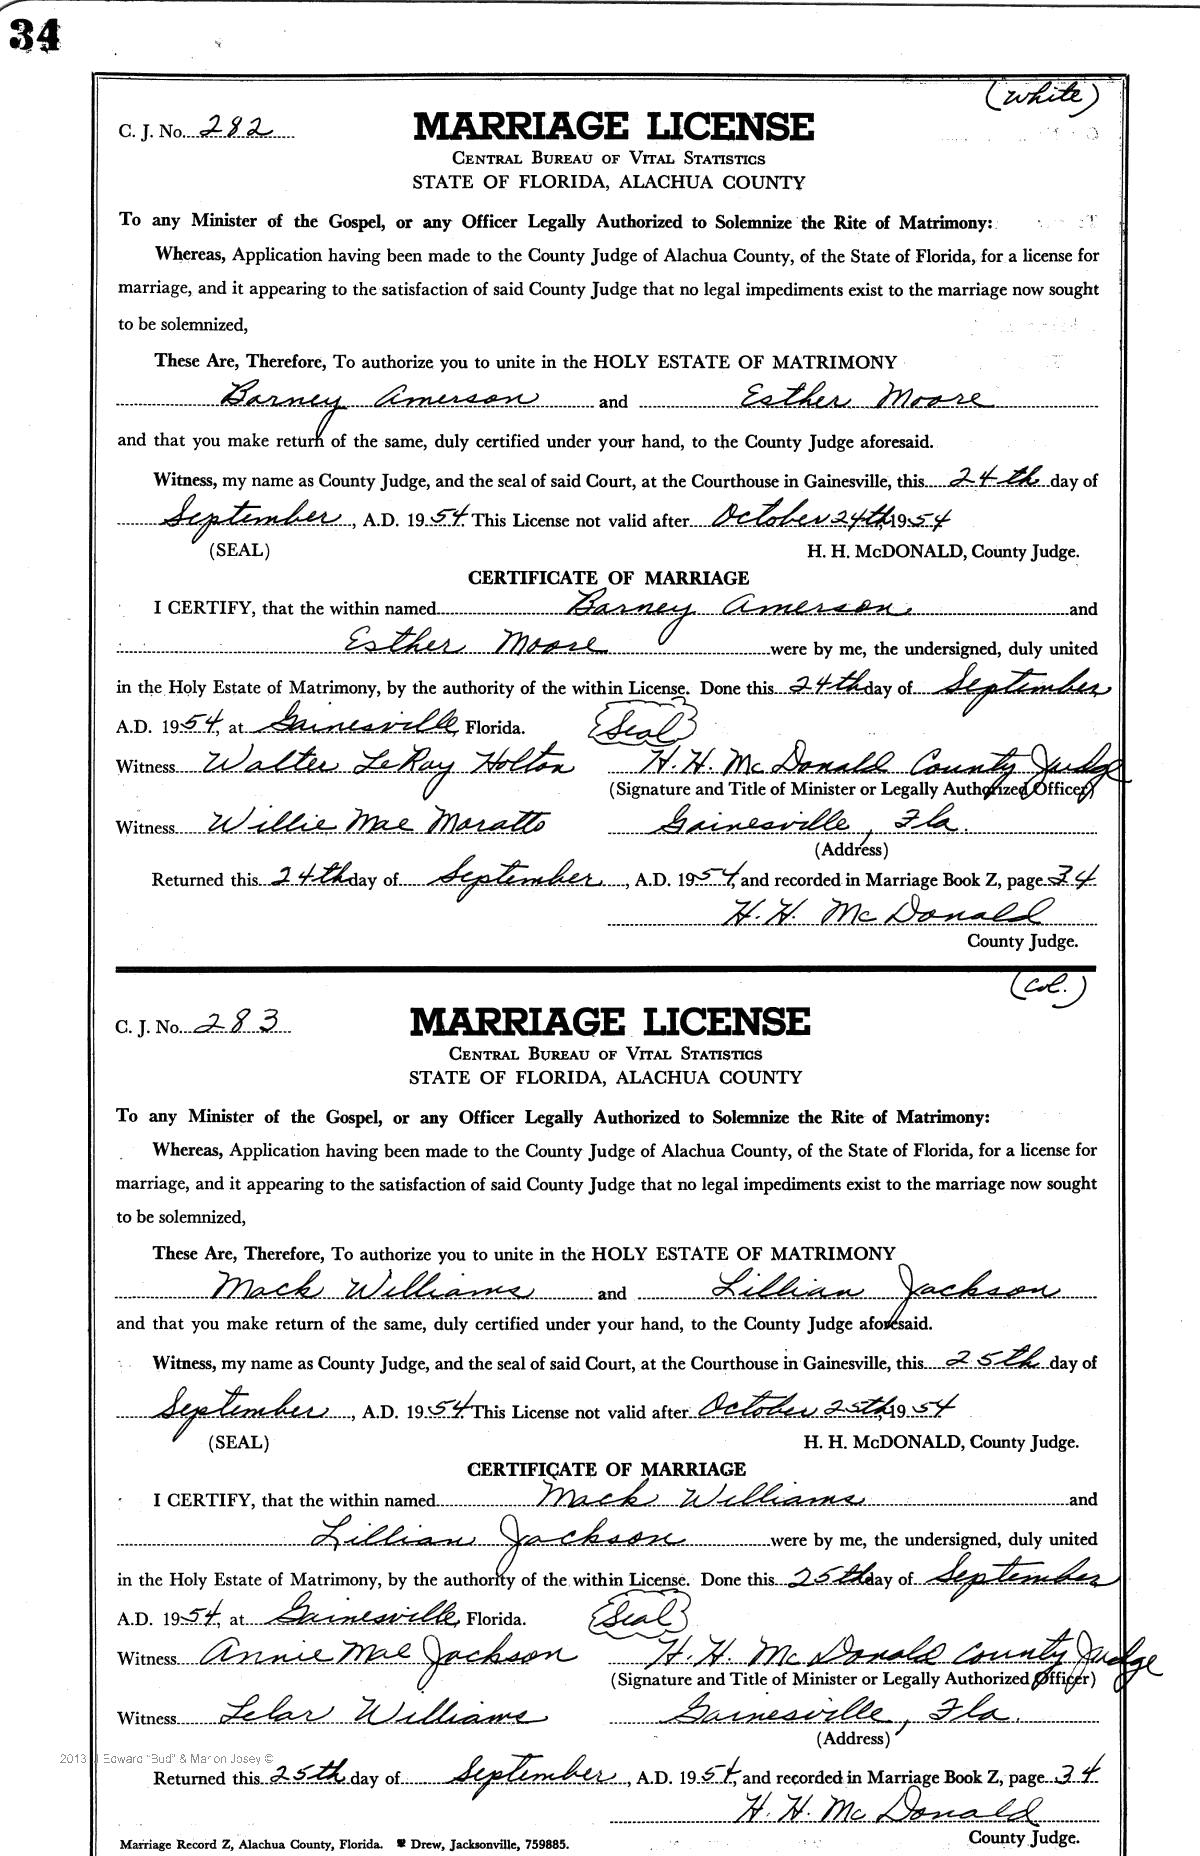 34
(White)
C. J. No. 282
MARRIAGE LICENSE
CENTRAL BUREAU OF VITAL STATISTICS
STATE OF FLORIDA, ALACHUA COUNTY
To any Minister of the Gospel, or any Officer Legally Authorized to Solemnize the Rite of Matrimony:
Whereas, Application having been made to the County Judge of Alachua County, of the State of Florida, for a license for
marriage, and it appearing to the satisfaction of said County Judge that no legal impediments exist to the marriage now sought
to be solemnized,
These Are, Therefore, To authorize you to unite in the HOLY ESTATE OF MATRIMONY
Barney Amerson and Esther Moore
and that you make return of the same, duly certified under your hand, to the County Judge aforesaid.
Witness, my name as County Judge, and the seal of said Court, at the Courthouse in Gainesville, this 24th day of
September, A.D. 1954. This License not valid after October 24th, 1954
(SEAL) H. H. McDONALD, County Judge.
CERTIFICATE OF MARRIAGE
I CERTIFY, that the within named Barney Amerson and
Esther Moore were by me, the undersigned, duly united
in the Holy Estate of Matrimony, by the authority of the within License. Done this 24th day of September
A.D. 1954, at Gainesville, Florida. (Seal)
Witness Walter LeRay Holton H. H. McDonald County Judge
(Signature and Title of Minister or Legally Authorized Officer)
Witness Willie Mae Moratto Gainesville, Fla.
(Address)
Returned this 24th day of September, A.D. 1954, and recorded in Marriage Book Z, page 34
H. H. McDonald
County Judge.
(Col.)
C. J. No. 283
MARRIAGE LICENSE
CENTRAL BUREAU OF VITAL STATISTICS
STATE OF FLORIDA, ALACHUA COUNTY
To any Minister of the Gospel, or any Officer Legally Authorized to Solemnize the Rite of Matrimony:
Whereas, Application having been made to the County Judge of Alachua County, of the State of Florida, for a license for
marriage, and it appearing to the satisfaction of said County Judge that no legal impediments exist to the marriage now sought
to be solemnized,
These Are, Therefore, To authorize you to unite in the HOLY ESTATE OF MATRIMONY
Mack Williams and Lillian Jackson
and that you make return of the same, duly certified under your hand, to the County Judge aforesaid.
Witness, my name as County Judge, and the seal of said Court, at the Courthouse in Gainesville, this 25th day of
September, A.D. 1954. This License not valid after October 25th, 1954
(SEAL) H. H. McDONALD, County Judge.
CERTIFICATE OF MARRIAGE
I CERTIFY, that the within named Mack Williams and
Lillian Jackson were by me, the undersigned, duly united
in the Holy Estate of Matrimony, by the authority of the within License. Done this 25th day of September
A.D. 1954, at Gainesville, Florida. (Seal)
Witness Annie Mae Jackson H. H. McDonald County Judge
(Signature and Title of Minister or Legally Authorized Officer)
Witness Lelar Williams Gainesville, Fla.
(Address)
2013 J Edward "Bud" & Marion Josey ©
Returned this 25th day of September, A.D. 1954, and recorded in Marriage Book Z, page 34
H. H. McDonald
County Judge.
Marriage Record Z, Alachua County, Florida. Drew, Jacksonville, 759885.